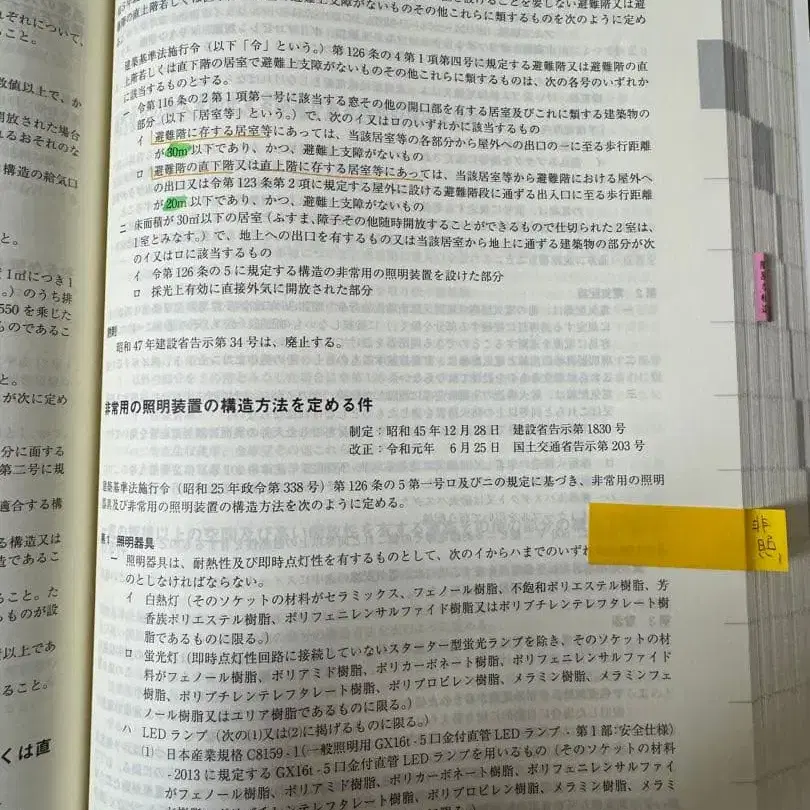 設けることを要しない避難階又は避
の直上階若しくは直下階の居室で避難上支障がないものその他これらに類するものを次のように定め
る。
建築基準法施行令（以下「令」という。）第126条の4第1項第四号に規定する避難階又は避難階の直
上階若しくは直下階の居室で避難上支障がないものその他これらに類するものは、次の各号のいずれか
に該当するものとする。
一 令第116条の2第1項第一号に該当する窓その他の開口部を有する居室及びこれに類する建築物の
部分（以下「居室等」という。）で、次のイ又はロのいずれかに該当するもの
イ 避難階に存する居室等にあっては、当該居室等の各部分から屋外への出口の一に至る歩行距離
が30m以下であり、かつ、避難上支障がないもの
ロ 避難階の直下階又は直上階に存する居室等にあっては、当該居室等から避難階における屋外へ
の出口又は令第123条第2項に規定する屋外に設ける避難階段に通ずる出入口に至る歩行距離
が20m以下であり、かつ、避難上支障がないもの
二 床面積が30㎡以下の居室（ふすま、障子その他随時開放することができるもので仕切られた2室は、
1室とみなす。）で、地上への出口を有するもの又は当該居室から地上に通ずる建築物の部分が次
のイ又はロに該当するもの
イ 令第126条の5に規定する構造の非常用の照明装置を設けた部分
ロ 採光上有効に直接外気に開放された部分
附則
昭和47年建設省告示第34号は、廃止する。
非常用の照明装置の構造方法を定める件
制定：昭和45年12月28日 建設省告示第1830号
改正：令和元年 6月25日 国土交通省告示第203号
建築基準法施行令（昭和25年政令第338号）第126条の5第一号ロ及びニの規定に基づき、非常用の照明
器具及び非常用の照明装置の構造方法を次のように定める。
第1 照明器具
一 照明器具は、耐熱性及び即時点灯性を有するものとして、次のイからハまでのいずれ
のとしなければならない。
イ 白熱灯（そのソケットの材料がセラミックス、フェノール樹脂、不飽和ポリエステル樹脂、芳
香族ポリエステル樹脂、ポリフェニレンサルファイド樹脂又はポリブチレンテレフタレート樹
脂であるものに限る。）
ロ 蛍光灯（即時点灯性回路に接続していないスターター型蛍光ランプを除き、そのソケットの材
料がフェノール樹脂、ポリアミド樹脂、ポリカーボネート樹脂、ポリフェニレンサルファイド
樹脂、ポリブチレンテレフタレート樹脂、ポリプロピレン樹脂、メラミン樹脂、メラミンフェ
ノール樹脂又はユリア樹脂であるものに限る。）
ハ LEDランプ（次の(1)又は(2)に掲げるものに限る。）
(1) 日本産業規格C8159-1（一般照明用GX16t-5口金付直管LEDランプ-第1部:安全仕様）
-2013に規定するGX16t-5口金付直管LEDランプを用いるもの（そのソケットの材料
がフェノール樹脂、ポリアミド樹脂、ポリカーボネート樹脂、ポリフェニレンサルファイ
ド樹脂、ポリブチレンテレフタレート樹脂、ポリプロピレン樹脂、メラミン樹脂、メラミ
非
照
れぞれについて、
こと。
数値以上で、か
開放された場合
れるおそれのな
構造の給気口
と。
1㎡につき1
。）のうち排
550を乗じた
ものであるこ
と。
が次に定め
分に面する
第二号に規
適合する構
る構造又は
造であるこ
ること。た
ものが設
以上であ
ること。
くは直